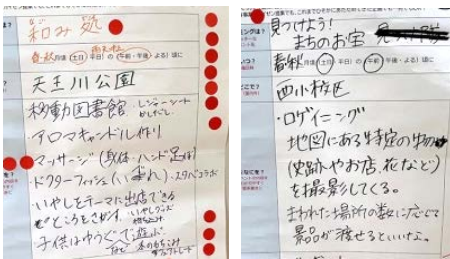 和み処
春・秋 雨天OK
月頃 (土日 平日) の (午前・午後・よる) 頃に
天王川公園
移動図書館 レジャーシート かしだし。
・アロマキャンドル作り
・マッサージ (身体・ハンド 足(え))
・ドクターフィッシュ
・いやしをテーマに出店できる
ところをさがす。
・子供はゆうぐで遊ぶ
見つけよう!
まちのお宝
春秋 月頃 (土日 平日) の (午前・午後・よる) 頃に
西小校区
・ロゲイニング
地図にある特定の物
(史跡やお店、花など)
を撮影してくる。
まわれた場所の数に応じて
景品が渡せるといいな。